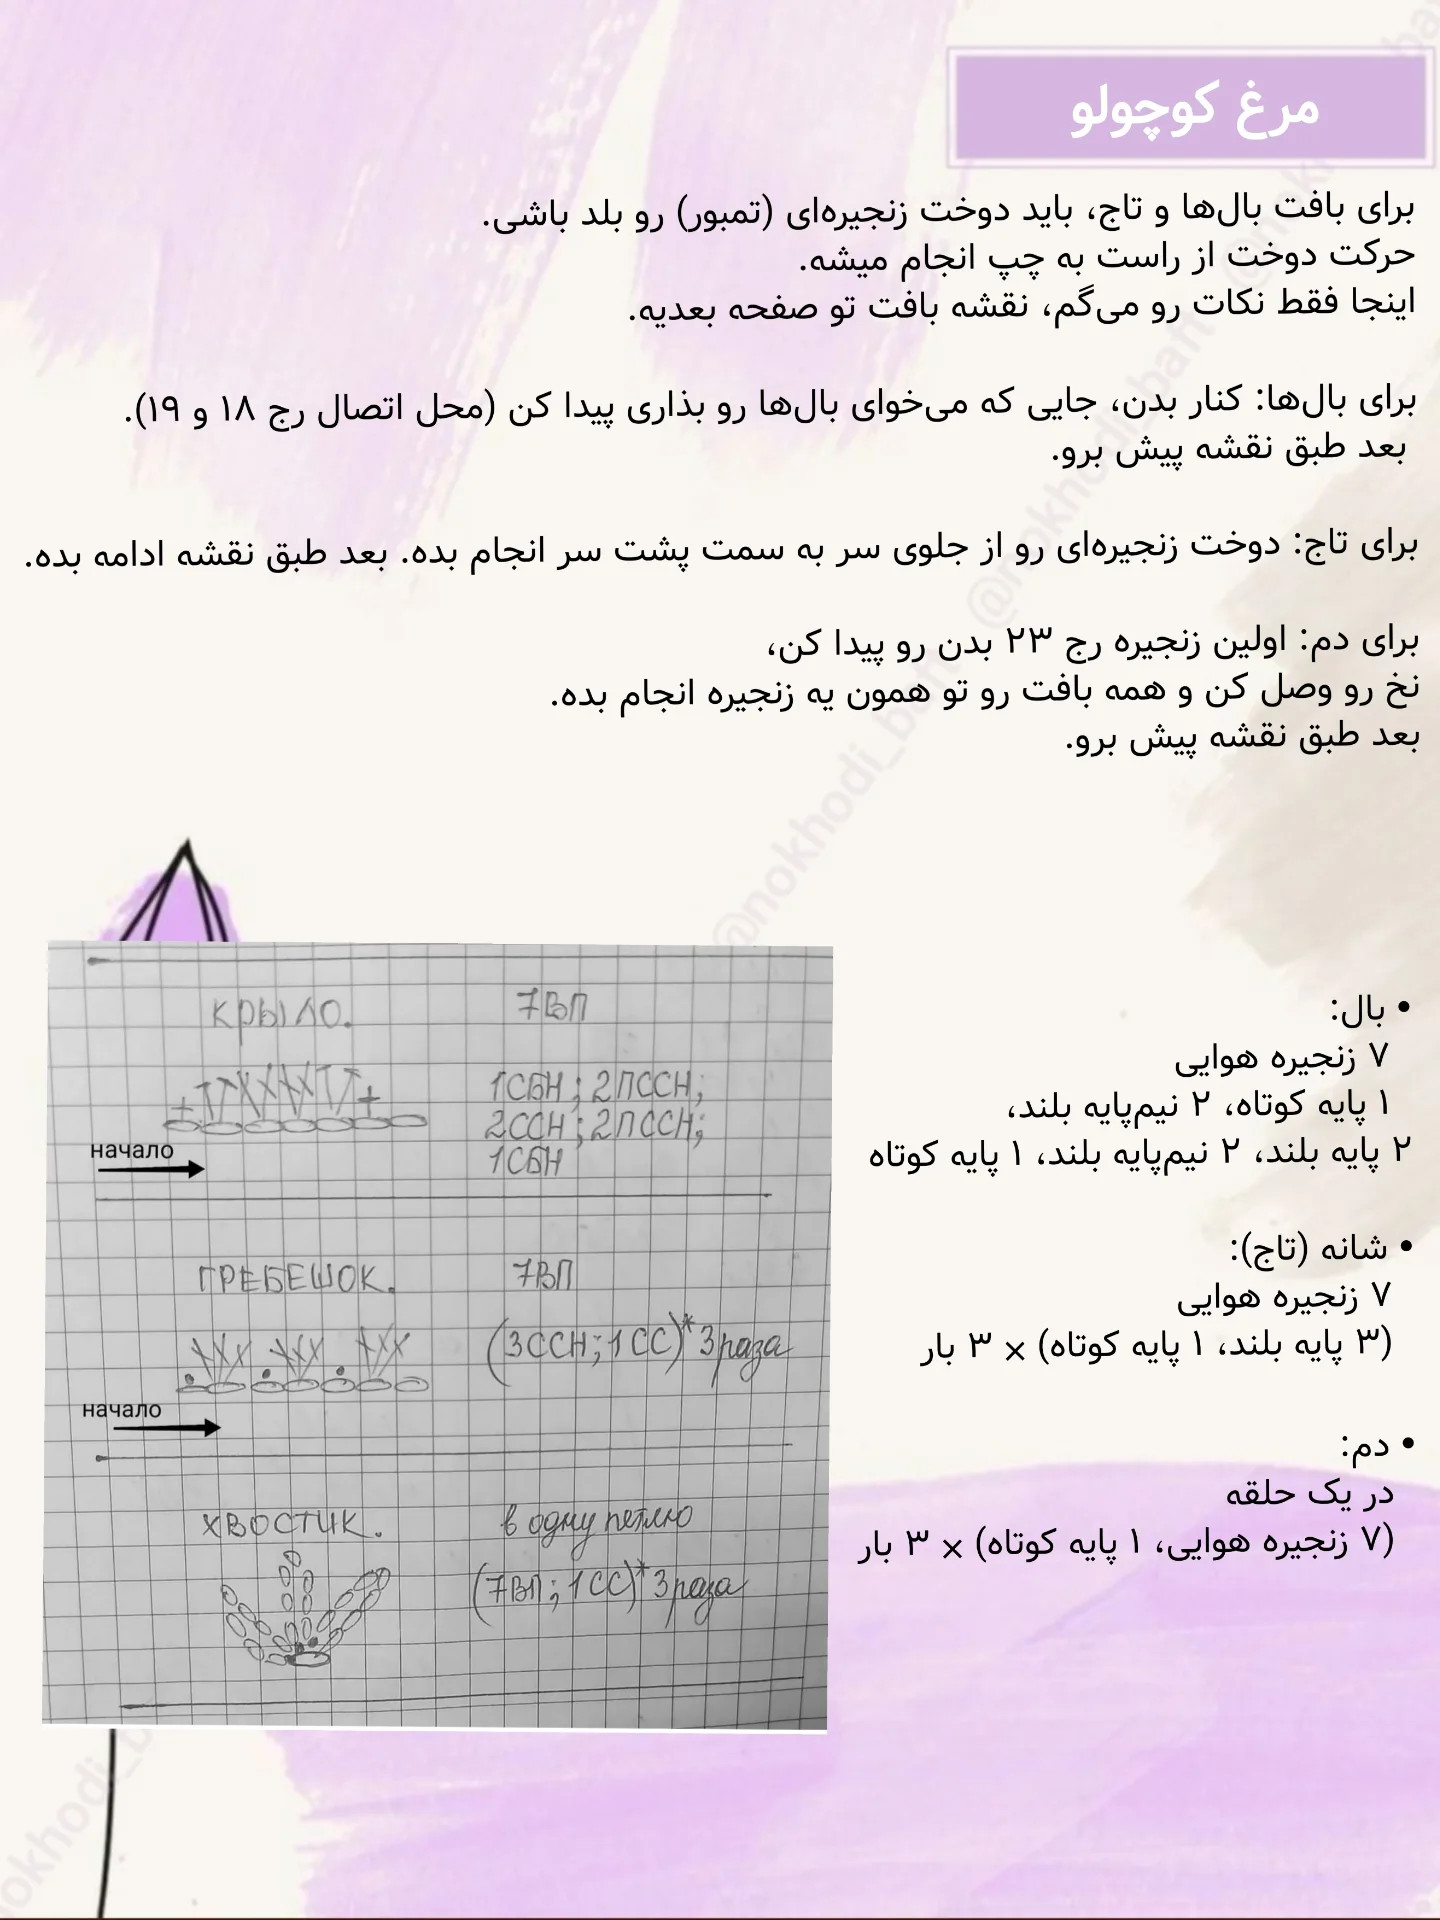 مرغ کوچولو
برای بافت بال‌ها و تاج، باید دوخت زنجیره‌ای (تمبور) رو بلد باشی.
حرکت دوخت از راست به چپ انجام میشه.
اینجا فقط نکات رو می‌گم، نقشه بافت تو صفحه بعدیه.
برای بال‌ها: کنار بدن، جایی که می‌خوای بال‌ها رو بذاری پیدا کن (محل اتصال رج ۱۸ و ۱۹).
بعد طبق نقشه پیش برو.
برای تاج: دوخت زنجیره‌ای رو از جلوی سر به سمت پشت سر انجام بده. بعد طبق نقشه ادامه بده.
برای دم: اولین زنجیره رج ۲۳ بدن رو پیدا کن،
نخ رو وصل کن و همه بافت رو تو همون یه زنجیره انجام بده.
بعد طبق نقشه پیش برو.
• بال:
۷ زنجیره هوایی
۱ پایه کوتاه، ۲ نیم‌پایه بلند،
۲ پایه بلند، ۲ نیم‌پایه بلند، ۱ پایه کوتاه
• شانه (تاج):
۷ زنجیره هوایی
(۳ پایه بلند، ۱ پایه کوتاه) × ۳ بار
• دم:
در یک حلقه
(۷ زنجیره هوایی، ۱ پایه کوتاه) × ۳ بار
КРЫЛО.
7ВП
1СБН; 2ПССН;
2ССН; 2ПССН;
1СБН
начало
ГРЕБЕШОК.
7ВП
(3ССН; 1СС)*3раза
начало
ХВОСТИК.
в одну петлю
(7ВП; 1СС)*3раза
@nokhodi_baft
@nokhodi_baft